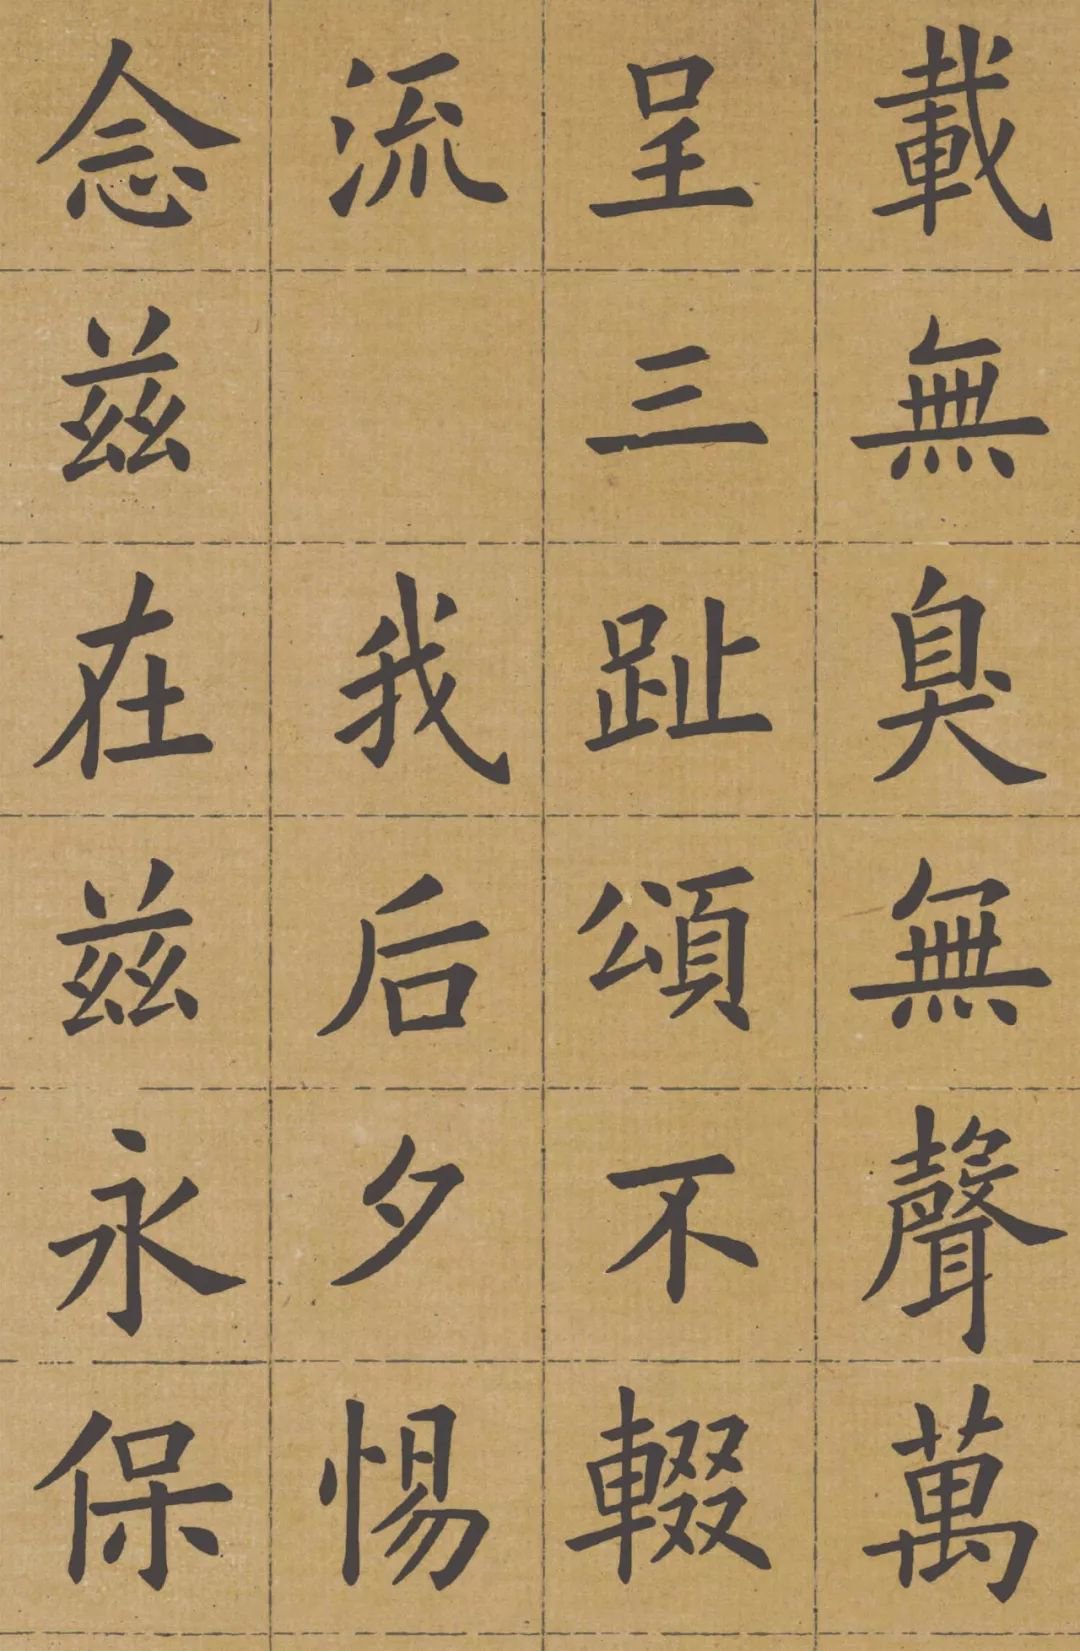 載無臭無聲萬
呈三趾頌不輟
流 我后夕惕
念兹在兹永保